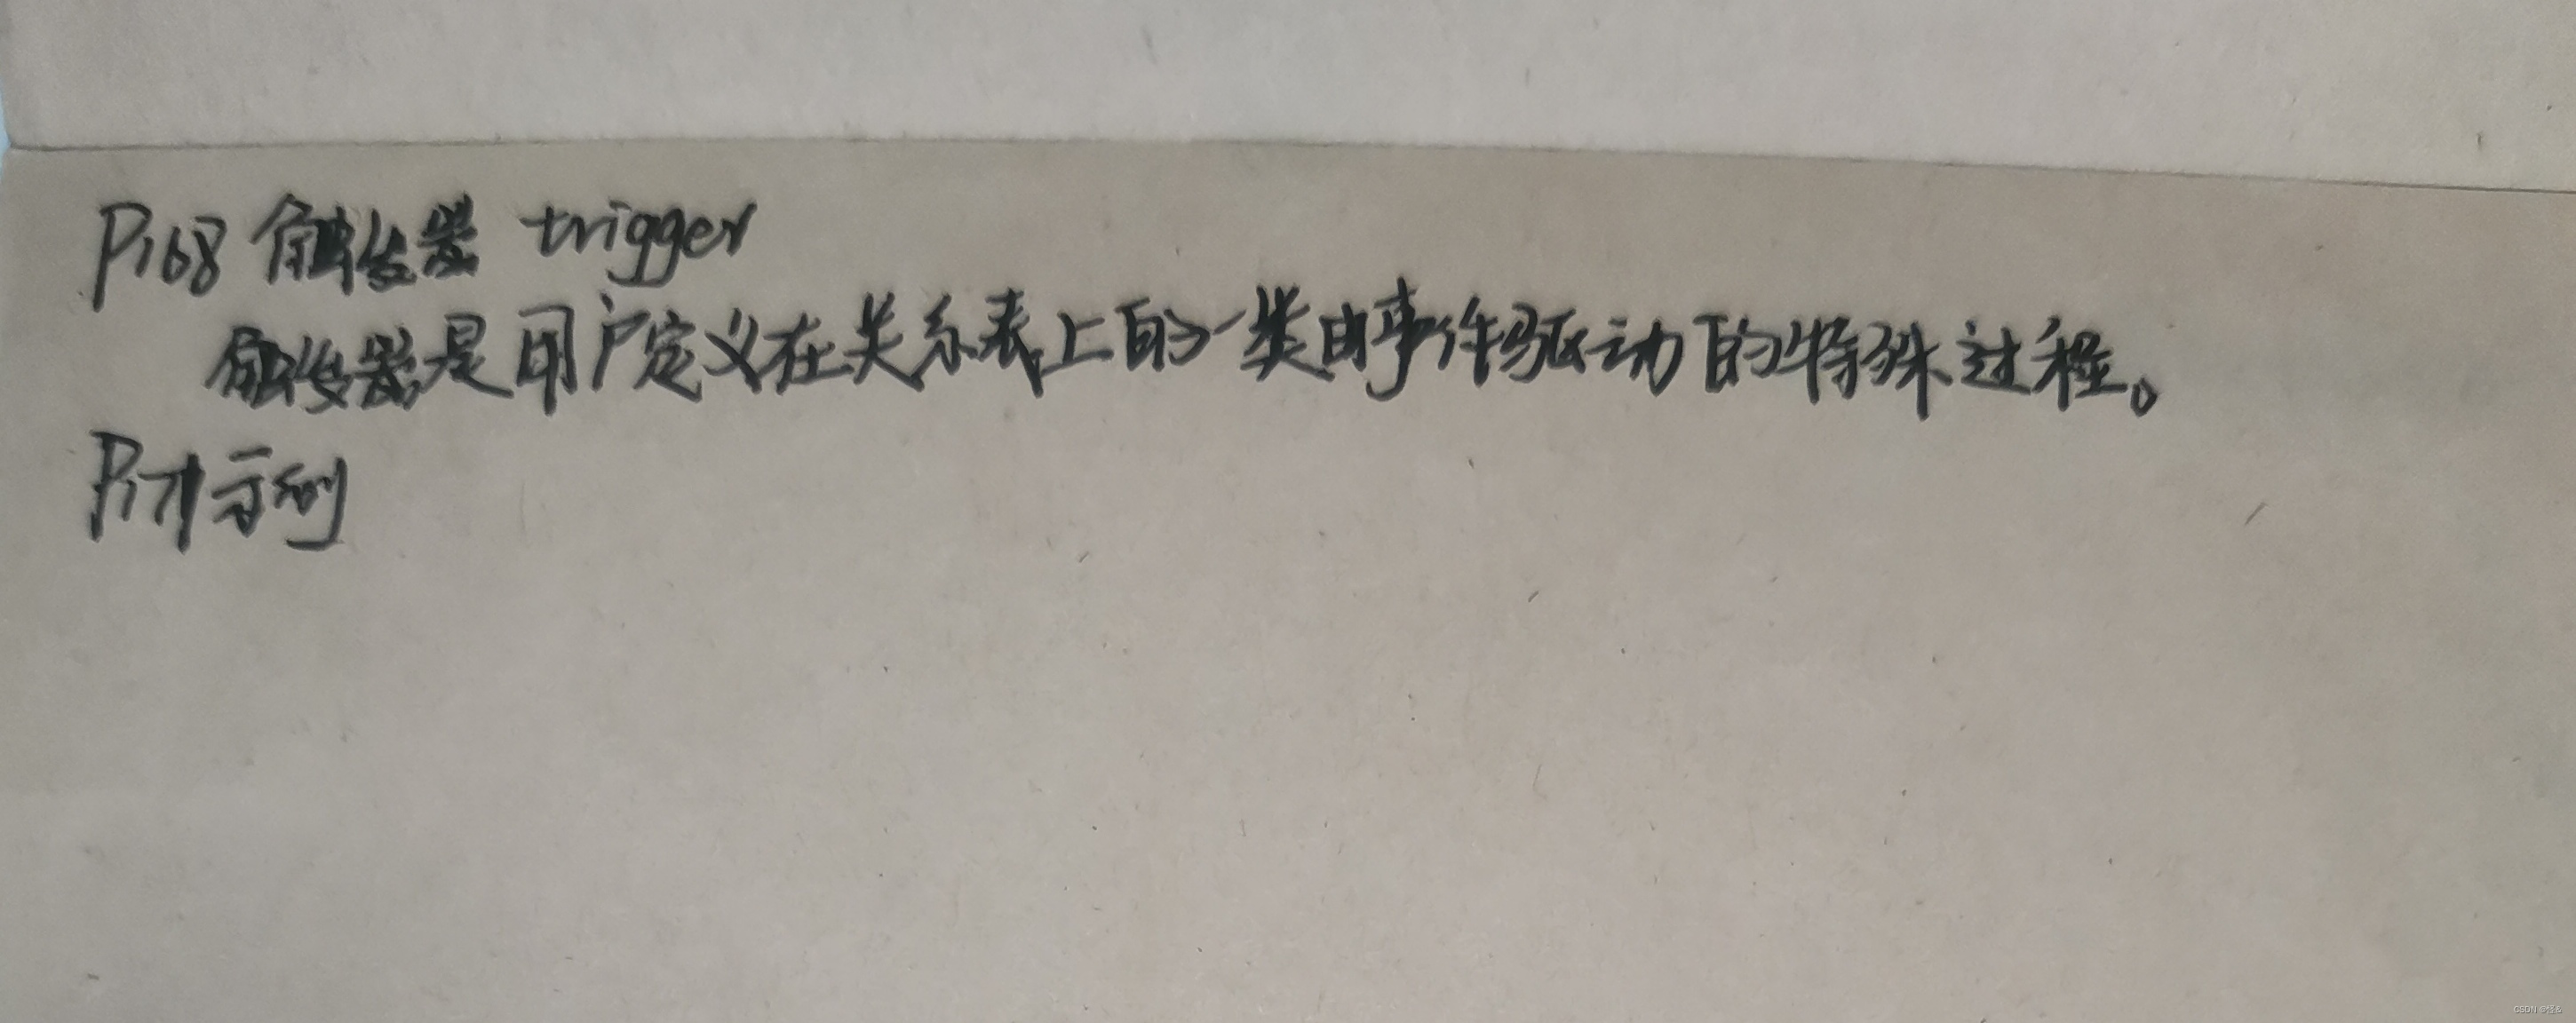 P168 触发器 trigger
触发器是用户定义在关系表上的一类由事件驱动的特殊过程。
P171示例